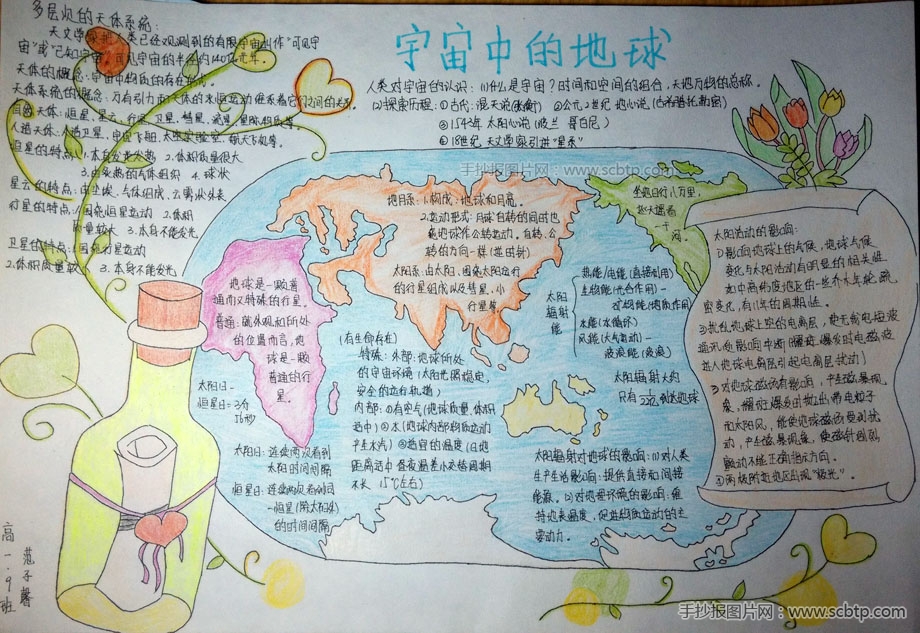 多层次的天体系统：
天文学家把人类已经观测到的有限宇宙叫作"可见宇
宙"或"已知宇宙。可见宇宙的半径约140亿光年。
天体的概念：宇宙中物质的存在形式。
天体系统的概念：万有引力和天体的永恒运动维系着它们之间的关系。
自然天体：恒星、星云、行星、卫星、彗星、流星、星际物质等。
人造天体：人造卫星、宇宙飞船、太空实验室、航天飞机等。
恒星的特点：1.本身发光发热 2.体积质量很大
3.由炙热的气体组织 4.球状
星云的特点：由尘埃、气体组成，云雾状外表
行星的特点：1.围绕恒星运动 2.体积
质量较大 3.本身不能发光
卫星的特点：1.围绕行星运动
2.体积质量较小 3.本身不能发光
宇宙中的地球
人类对宇宙的认识：(1)什么是宇宙？时间和空间的组合，天地万物的总称。
(2)探索历程：①古代：浑天说(张衡) ②公元2世纪 地心说(古希腊托勒密)
③1543年 太阳心说(波兰 哥白尼)
④18世纪，天文学家引进"星系"
手抄报图片网：www.scbtp.com
地月系：1.构成：地球和月亮。
2.运动形式：月球自转的同时也
绕地球作公转运动，自转、公
转的方向一样(逆时针)
太阳系：由太阳、围绕太阳运行
的行星组成以及彗星、小
行星等。
坐地日行八万里，
巡天遥看
一千河。
地球是一颗普
通而又特殊的行星。
普通：就外观和所处
的位置而言，地
球是一颗
普通的行
星。
(有生命存在)
特殊：外部：地球所处
的宇宙环境(太阳光照稳定，
安全的运行轨道)
内部：①有空气(地球质量、体积
适中)②水(地球内部物质运动
产生水汽)③适宜的温度(日地
距离适中 昼夜温差小，自转周期
不长 15℃左右)
太阳日-
恒星日=3分
56秒
太阳日：连续两次看到
太阳时间间隔
恒星日：连续两次看到同
一恒星(除太阳外)
的时间间隔
太阳
辐射
能
热能/电能(直接利用)
生物能(光合作用)-
矿物能(地质作用)
水能(水循环)
风能(大气运动)-
波浪能(波浪)
太阳辐射大约
只有1/22亿到达地球
太阳辐射对地球的影响：(1)对人
类生产生活影响：提供直接和间接
能源。(2)对地理环境的影响：维
持地表温度，促进物质运动的主
要动力。
太阳活动的影响：
①影响地球上的气候，地球气候
变化与太阳活动有明显的相关性
如中高纬度地区的一些乔木年轮疏
密变化，有11年的周期性。
②扰乱地球上空的电离层，使无线电短波
通讯受影响中断(耀斑爆发时电磁波
进入地球电离层引起电离层扰动)
③对地球磁场有影响，产生磁暴现
象，耀斑爆发时抛出带电粒子
和太阳风，能使地球磁场受到扰
动，产生磁暴现象，使磁针剧烈
颤动不能正确指示方向。
④两极附近地区出现"极光"。
高一.9班
范子馨
手抄报图片网：www.scbtp.com